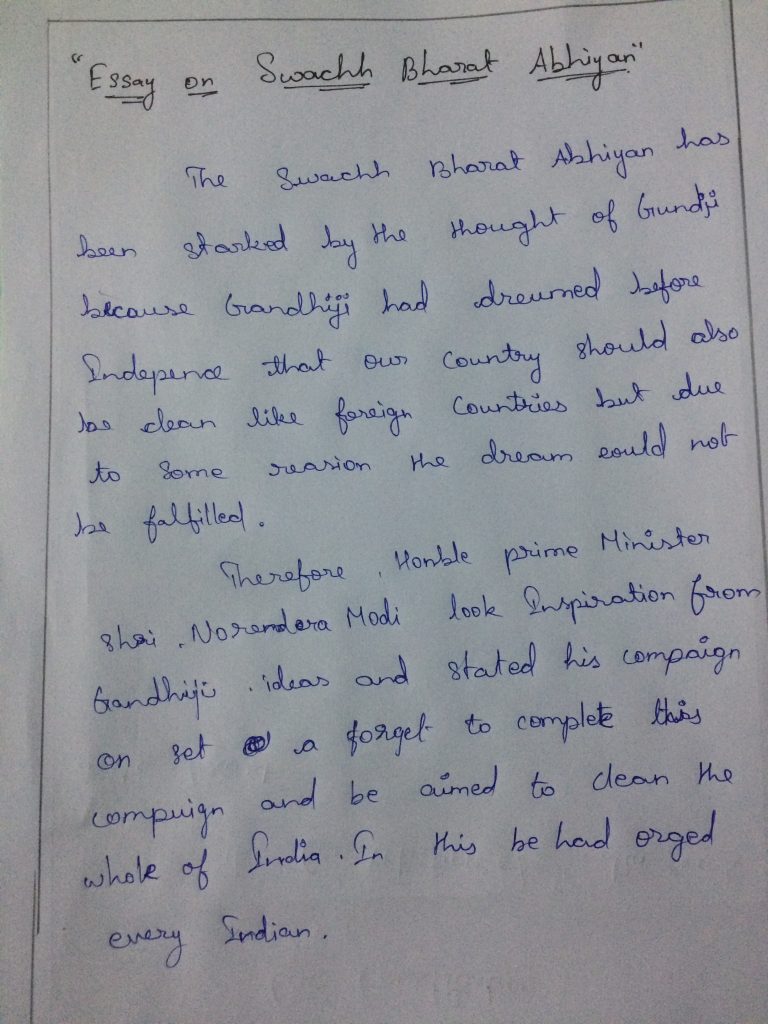 "Essay on Swachh Bharat Abhiyan"
The Swachh Bharat Abhiyan has
been starked by the thought of Gundji
because Grandhiji had dreumed before
Indepence that our country should also
be clean like foreign Countries but due
to Some reasion the dream could not
be falfilled.
Therefore, Honble prime Minister
Shri. Norendera Modi look Inspiration from
Grandhiji. ideas and stated his compaign
on set a forget to complete this
compuign and be aimed to clean the
whole of India. In this be had orged
every Indian.